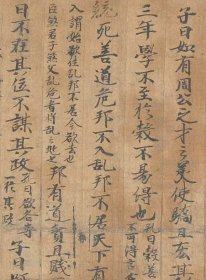 子曰如有周公之才之美使驕且
三年學不至於穀不易得也孔曰穀善
不可得
死善道危邦不入乱邦不居天下有
入謂始欲往乱邦不居今欲去也
臣煞君子煞父乱危者将乱之兆也邦有道貧且賤
曰不在其位不謀其政孔曰欲各專
一於其職子曰